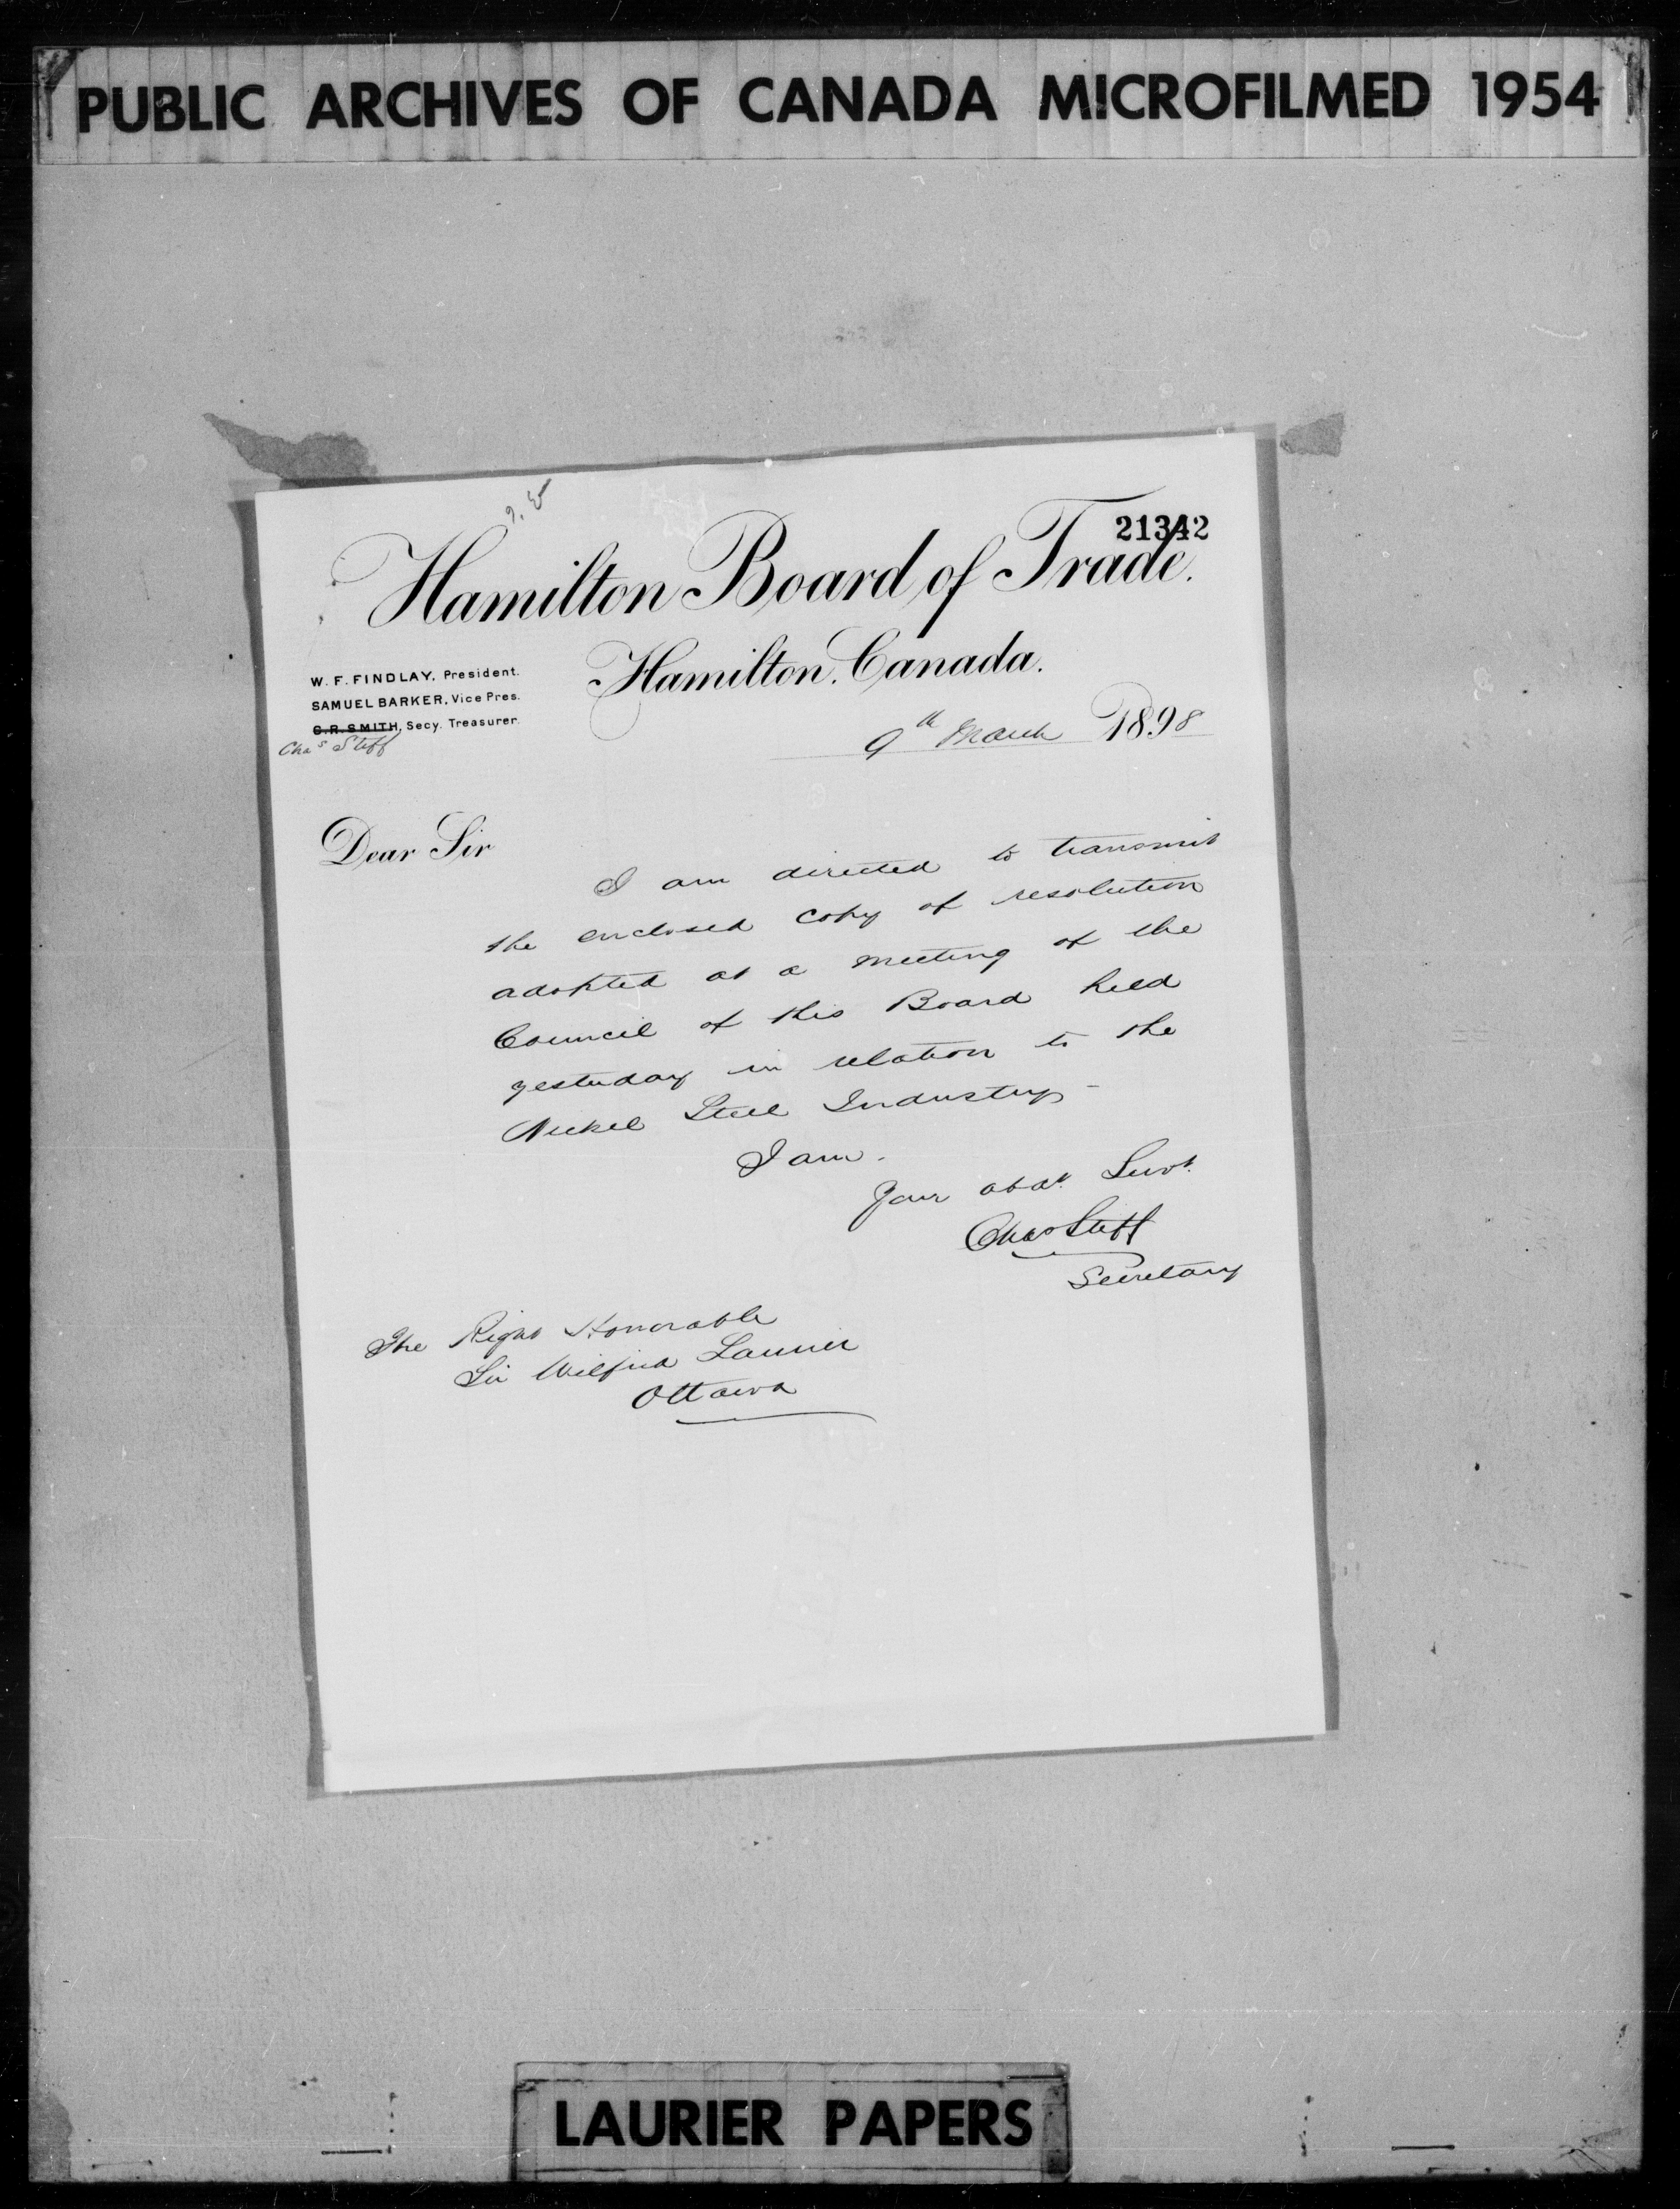 PUBLIC ARCHIVES OF CANADA MICROFILMED 1954
21342
Hamilton Board of Trade.
Hamilton, Canada.
W. F. FINDLAY, President.
SAMUEL BARKER, Vice Pres.
C. R. SMITH, Secy. Treasurer.
Chas Stiff
9th March 1898
Dear Sir
I am directed to transmit
the enclosed copy of resolution
adopted at a meeting of the
Council of this Board held
yesterday in relation to the
Nickel Steel Industry -
I am.
Your obdt. Servt.
Chas Stiff
Secretary
The Right Honorable
Sir Wilfrid Laurier
Ottawa
LAURIER PAPERS